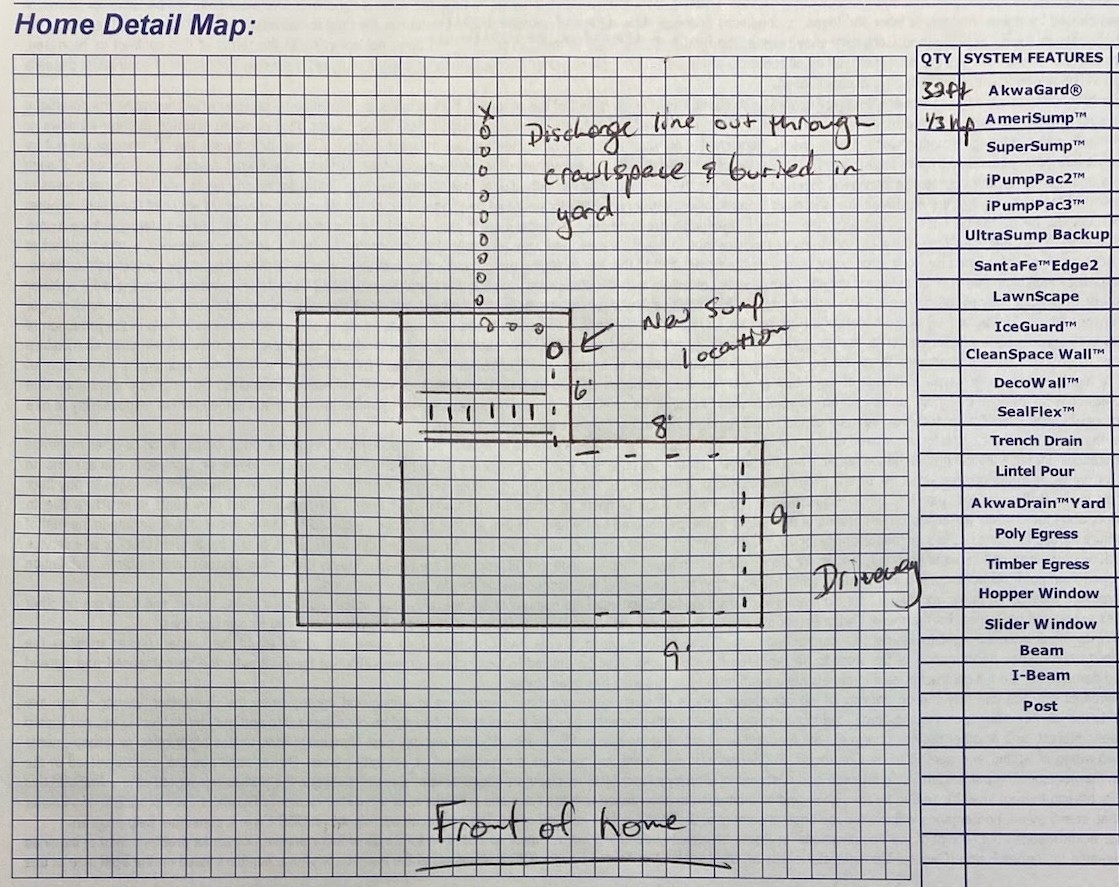 Home Detail Map:
X
Discharge line out through
crawlspace & buried in
yard
New Sump
Location
6'
8'
9'
Driveway
9'
Front of home
QTY SYSTEM FEATURES
32ft AkwaGard®
1/3 hp AmeriSump™
SuperSump™
iPumpPac2™
iPumpPac3™
UltraSump Backup
SantaFe™Edge2
LawnScape
IceGuard™
CleanSpace Wall™
DecoWall™
SealFlex™
Trench Drain
Lintel Pour
AkwaDrain™Yard
Poly Egress
Timber Egress
Hopper Window
Slider Window
Beam
I-Beam
Post